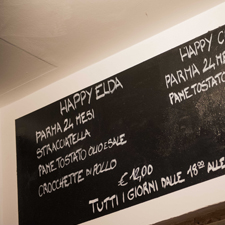 HAPPY ELDA
PARMA 24 MESI
STRACCIATELLA
PANE TOSTATO OLIO E SALE
CROCCHETTE DI POLLO
€ 12,00
HAPPY
PARMA 24 ME
PANE TOSTATO
TUTTI I GIORNI DALLE 18:00 ALLE